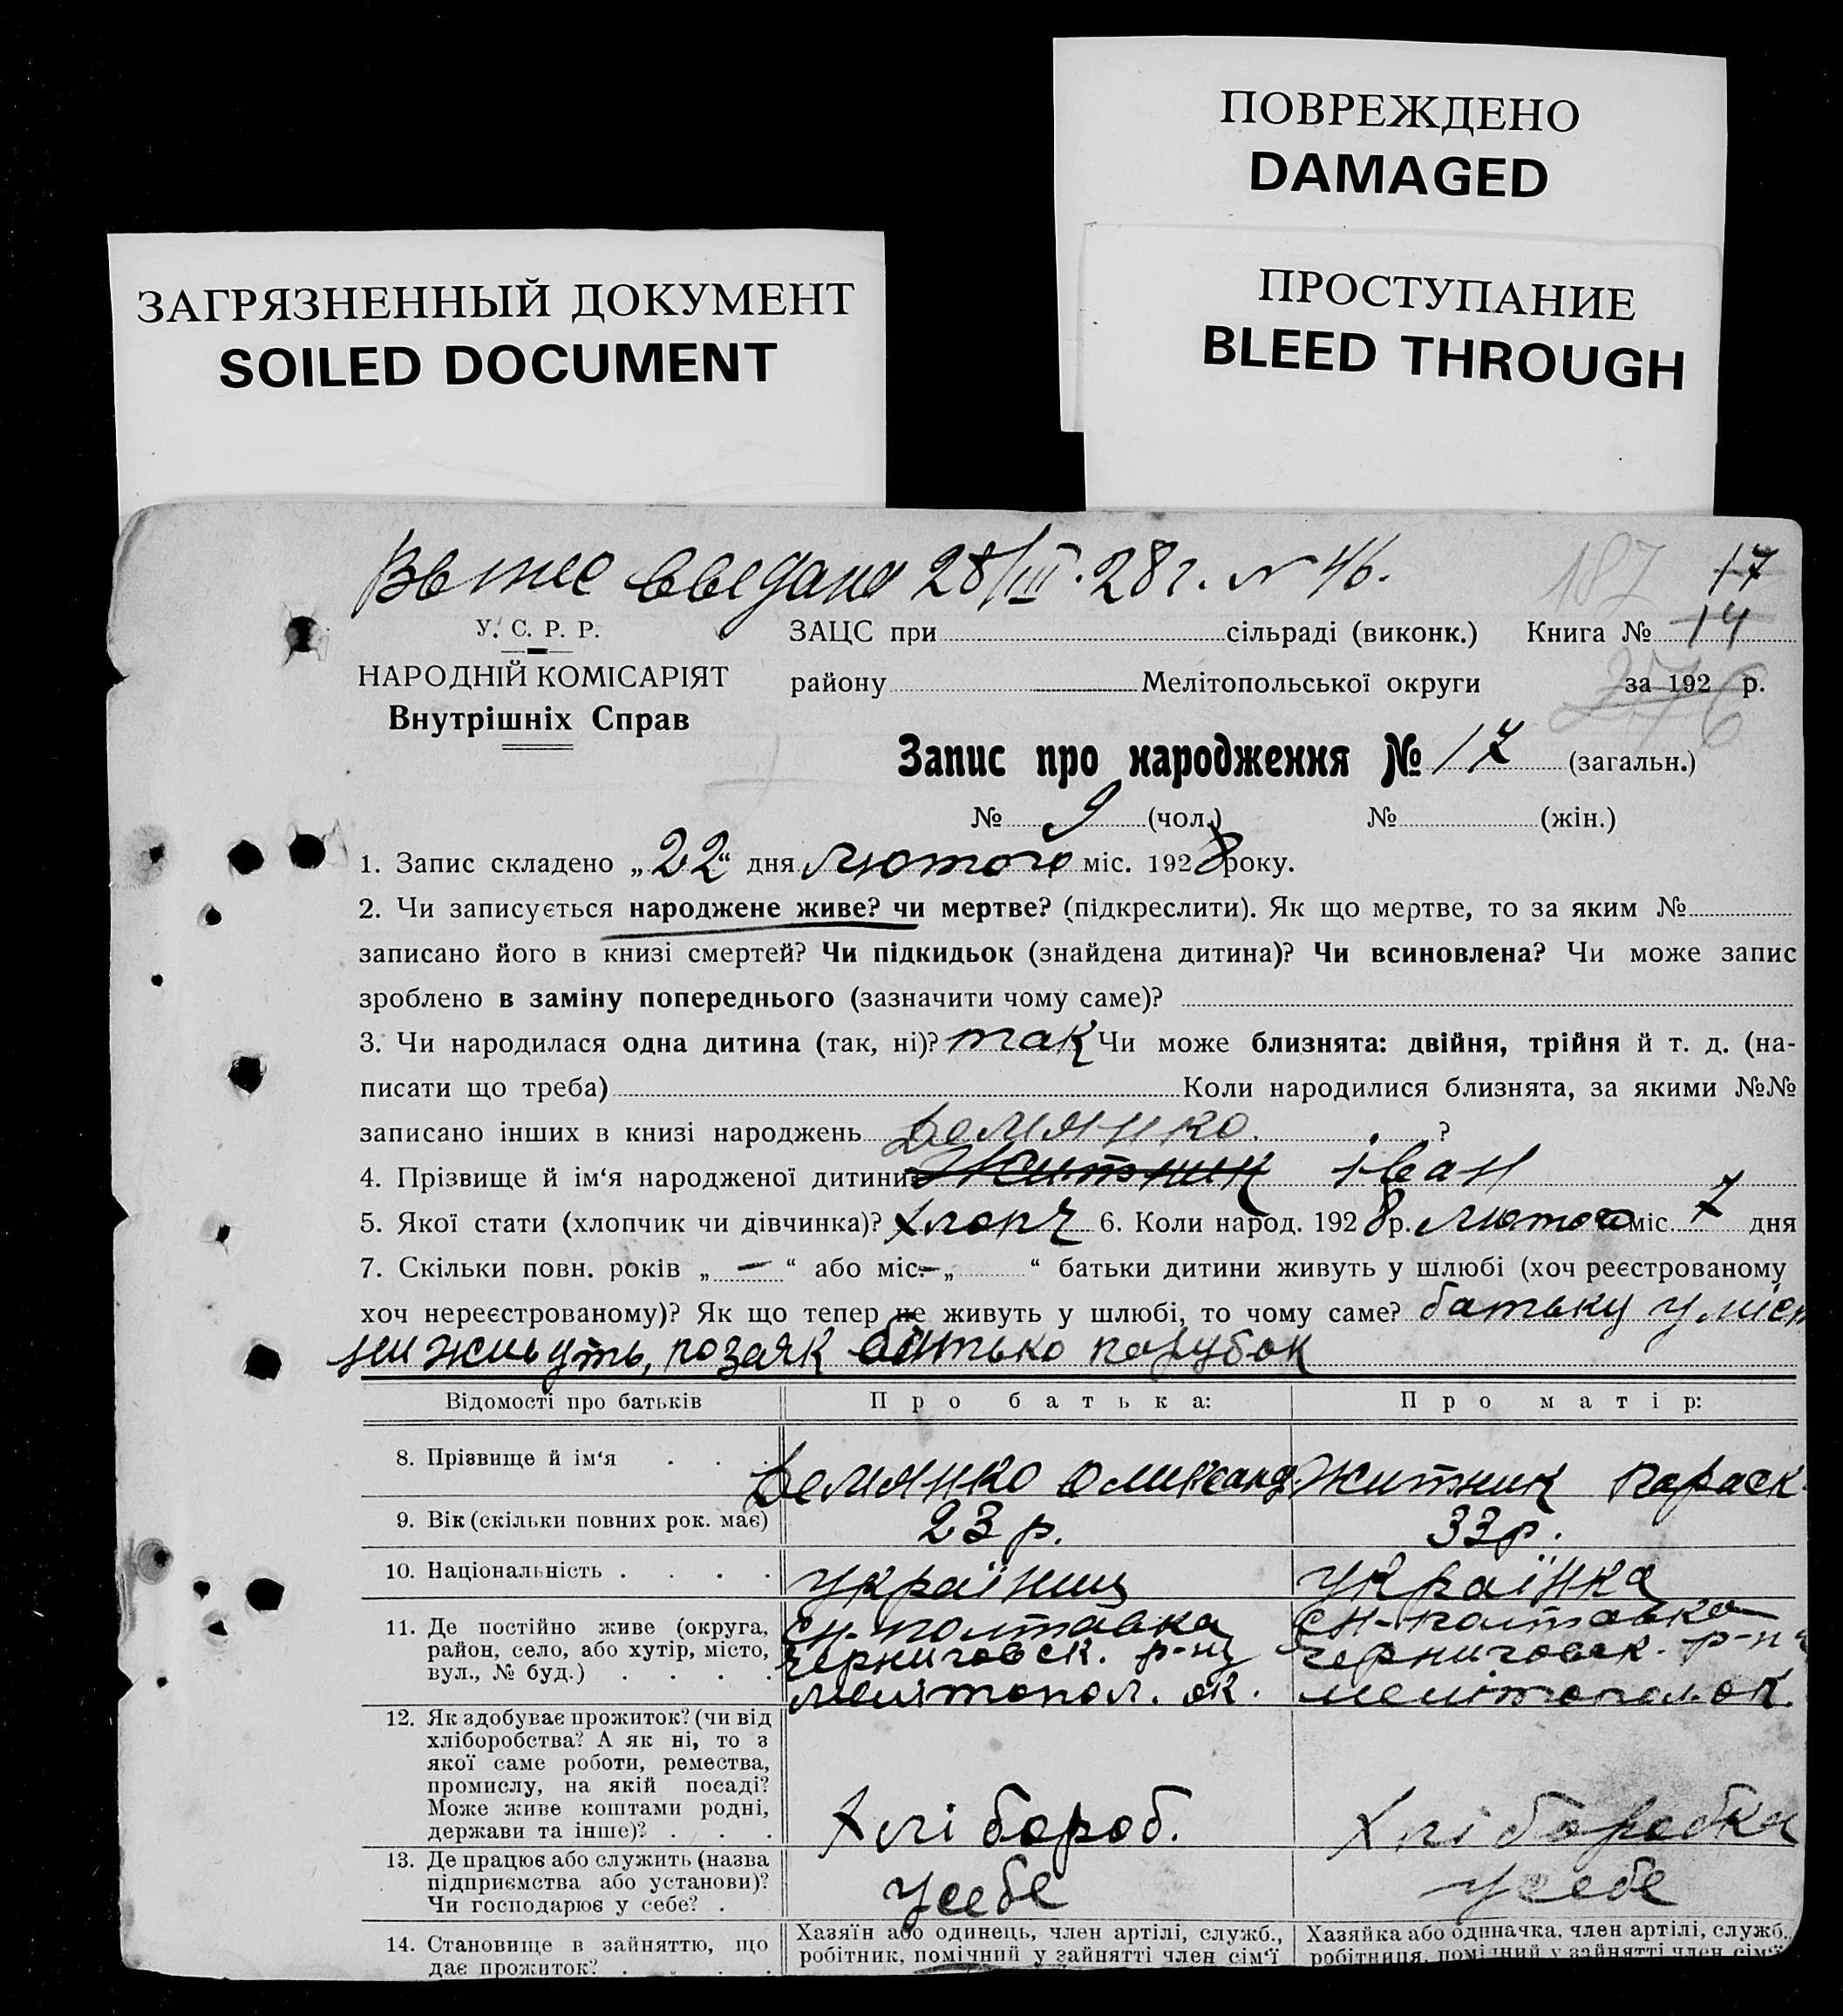 ПОВРЕЖДЕНО
DAMAGED
ЗАГРЯЗНЕННЫЙ ДОКУМЕНТ
SOILED DOCUMENT
ПРОСТУПАНИЕ
BLEED THROUGH
28/III.28г. N 46.
187 17
У. С. Р. Р.
ЗАЦС при сільраді (виконк.) Книга № 14
НАРОДНІЙ КОМІСАРІЯТ
Внутрішніх Справ
району Мелітопольської округи за 192 р.
276
Запис про народження № 17 (загальн.)
№ 9 (чол.) № (жін.)
1. Запис складено „22“ дня лютого міс. 1928 року.
2. Чи записується народжене живе? чи мертве? (підкреслити). Як що мертве, то за яким №
записано його в книзі смертей? Чи підкидьок (знайдена дитина)? Чи всиновлена? Чи може запис
зроблено в заміну попереднього (зазначити чому саме)?
3. Чи народилася одна дитина (так, ні)? так Чи може близнята: двійня, трійня й т. д. (на-
писати що треба) Коли народилися близнята, за якими №№
записано інших в книзі народжень Демянко ?
4. Прізвище й ім‘я народженої дитини Житник іван
5. Якої стати (хлопчик чи дівчинка)? хлопч 6. Коли народ. 1928 р. лютого міс. 7 дня
7. Скільки повн. років „ — “ або міс. — „ “ батьки дитини живуть у шлюбі (хоч реєстрованому
хоч нереєстрованому)? Як що тепер не живуть у шлюбі, то чому саме? батьку у
живуть, позаяк батько парубок
Відомості про батьків Про батька: Про матір:
8. Прізвище й ім‘я . . . Демянко Олександ. Житник Параск.
9. Вік (скільки повних рок. має) 23 р. 33 р.
10. Національність . . . . українец українка
11. Де постійно живе (округа, район, село, або хутір, місто, вул., № буд.) . . . .
сн-полтавка
черниговск. р-ну
мелітопол. ок.
сн-полтавка
черниговск. р-ну
мелітопол. ок.
12. Як здобуває прожиток? (чи від
хліборобства? А як ні, то з
якої саме роботи, ремества,
промислу, на якій посаді?
Може живе коштами родні,
держави та інше)? . . .
Хлібороб. Хліборобка
13. Де працює або служить (назва
підприємства або установи)?
Чи господарює у себе? .
усебе усебе
14. Становище в зайняттю, що
дає прожиток? . . . .
Хазяїн або одинець, член артілі, служб.,
робітник, помічний у зайнятті член сім‘ї
Хазяйка або одиначка, член артілі, служб.,
робітниця, помічний у зайнятті член сім‘ї